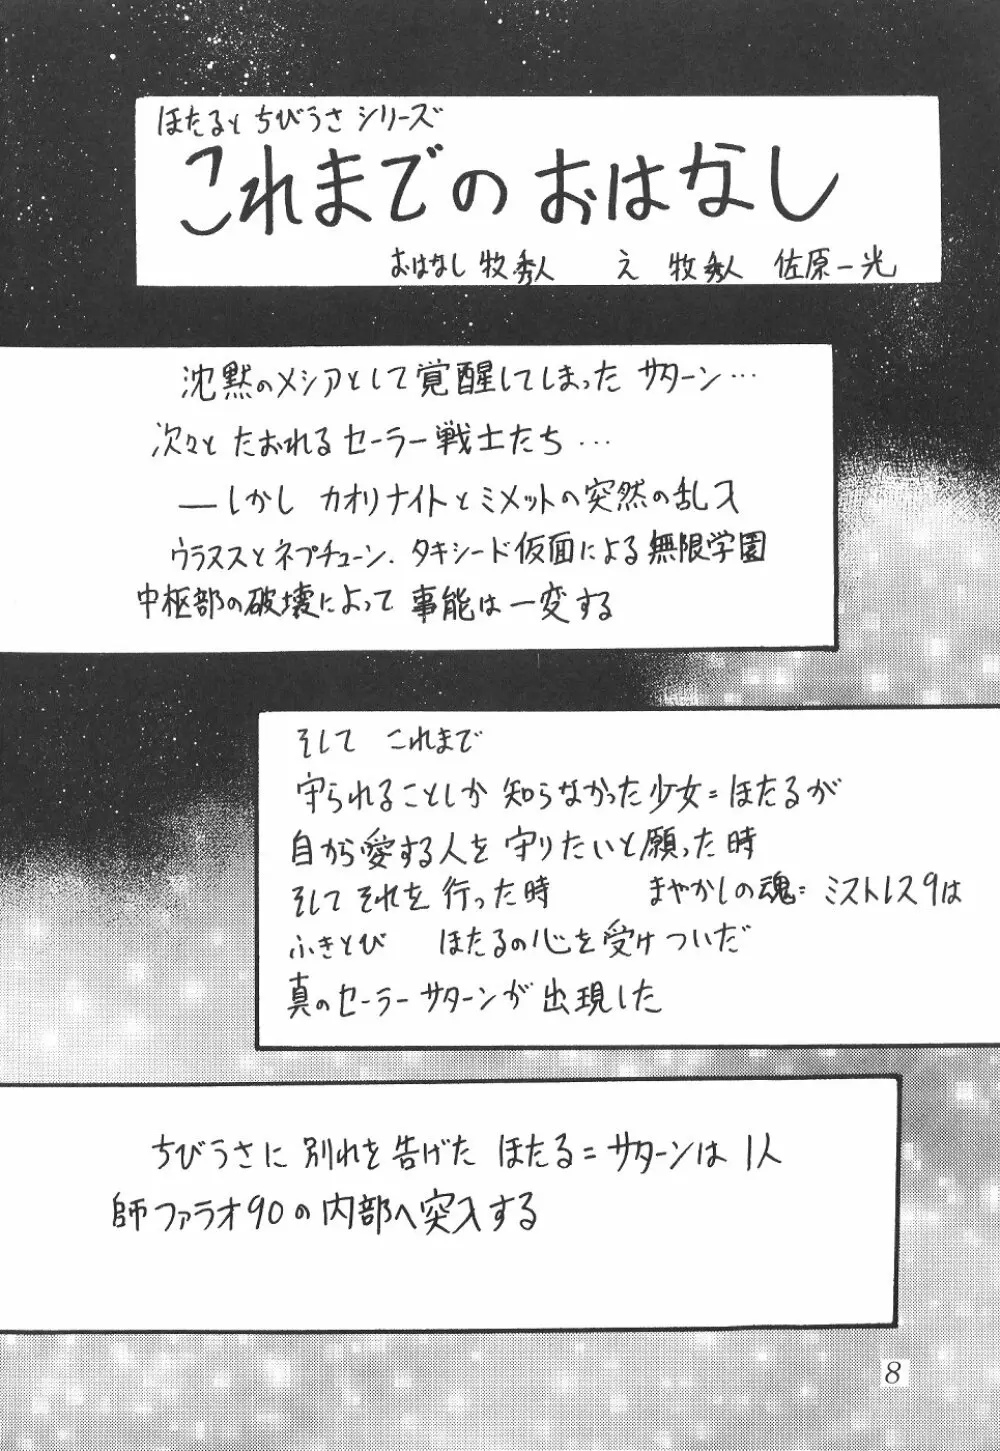 ほたると ちびうさ シリーズ
これまでの おはなし
おはなし 牧秀人　え 牧秀人 佐原一光
沈黙のメシアとして覚醒してしまった サターン…
次々と たおれる セーラー戦士たち…
―しかし カオリナイトとミメットの突然の乱入
ウラヌスとネプチューン．タキシード仮面による無限学園
中枢部の破壊によって 事態は一変する
そして これまで
守られることしか 知らなかった少女=ほたるが
自から愛する人を 守りたいと願った時
そして それを 行った時　まやかしの魂=ミストレス9は
ふきとび　ほたるの心を受けついだ
真のセーラーサターンが出現した
ちびうさに 別れを告げた ほたる=サターンは 1人
師ファラオ90の内部へ突入する
8